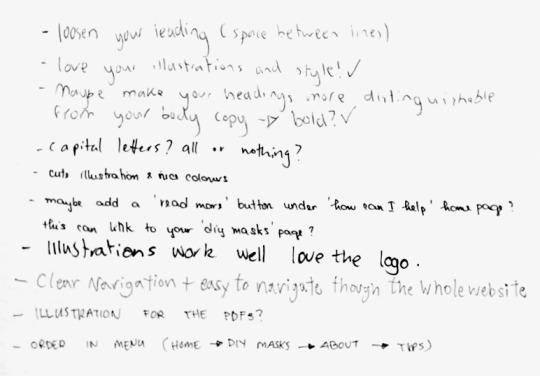 - loosen your leading (space between lines)
- love your illustrations and style! ✓
- Maybe make your headings more distinguishable
from your body copy -> bold? ✓
- Capital letters? all or nothing?
- cute illustration & nice colours
- maybe add a 'read more' button under 'how can I help' home page?
this can link to your 'diy masks' page?
- Illustrations work well love the logo.
- Clear Navigation + easy to navigate though the whole website
- ILLUSTRATION FOR THE PDFS?
- ORDER IN MENU (HOME → DIY MASKS → ABOUT → TIPS)